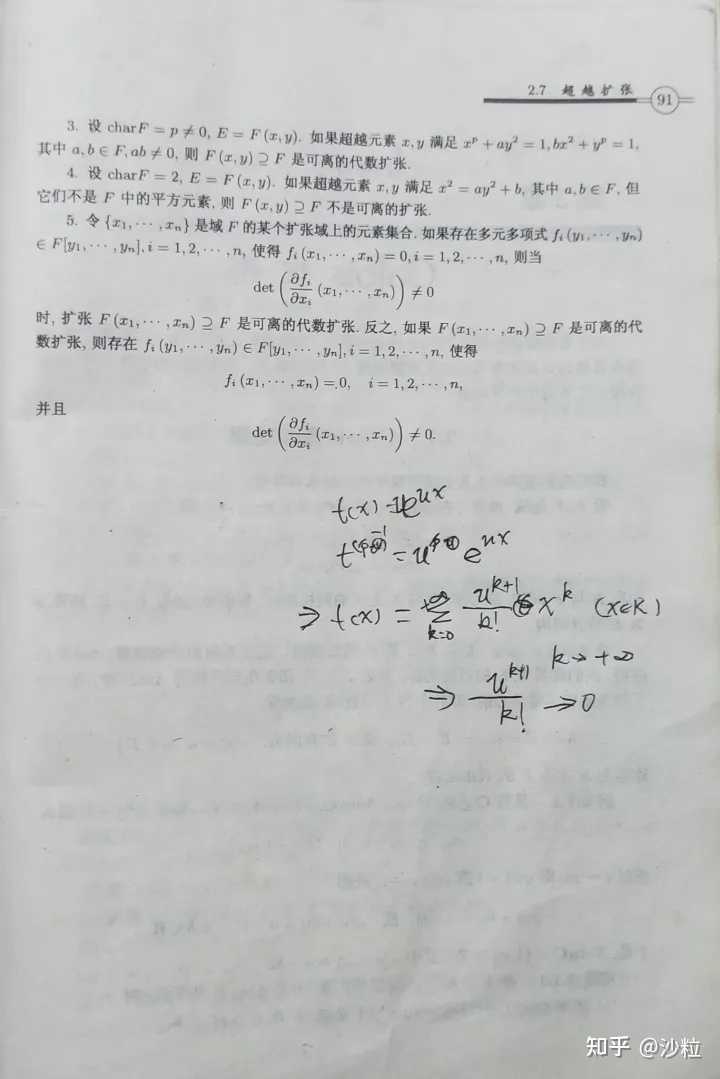 2.7 超越扩张 91
3. 设 charF = p ≠ 0, E = F(x, y). 如果超越元素 x, y 满足 x^p + ay^2 = 1, bx^2 + y^p = 1,
其中 a, b ∈ F, ab ≠ 0, 则 F(x, y) ⊇ F 是可离的代数扩张.
4. 设 charF = 2, E = F(x, y). 如果超越元素 x, y 满足 x^2 = ay^2 + b, 其中 a, b ∈ F, 但
它们不是 F 中的平方元素, 则 F(x, y) ⊇ F 不是可离的扩张.
5. 令 {x_1, ⋯, x_n} 是域 F 的某个扩张域上的元素集合. 如果存在多元多项式 f_i(y_1, ⋯, y_n)
∈ F[y_1, ⋯, y_n], i = 1, 2, ⋯, n, 使得 f_i(x_1, ⋯, x_n) = 0, i = 1, 2, ⋯, n, 则当
det (∂f_i/∂x_i (x_1, ⋯, x_n)) ≠ 0
时, 扩张 F(x_1, ⋯, x_n) ⊇ F 是可离的代数扩张. 反之, 如果 F(x_1, ⋯, x_n) ⊇ F 是可离的代
数扩张, 则存在 f_i(y_1, ⋯, y_n) ∈ F[y_1, ⋯, y_n], i = 1, 2, ⋯, n, 使得
f_i(x_1, ⋯, x_n) = 0, i = 1, 2, ⋯, n,
并且
det (∂f_i/∂x_i (x_1, ⋯, x_n)) ≠ 0.
f(x) = e^{ux}
= u e^{ux}
⇒ f(x) = ∑_{k=0}^{∞} u^{k+1}/k! x^k (x∈R)
k→+∞
⇒ u^{k+1}/k! → 0
知乎 @沙粒